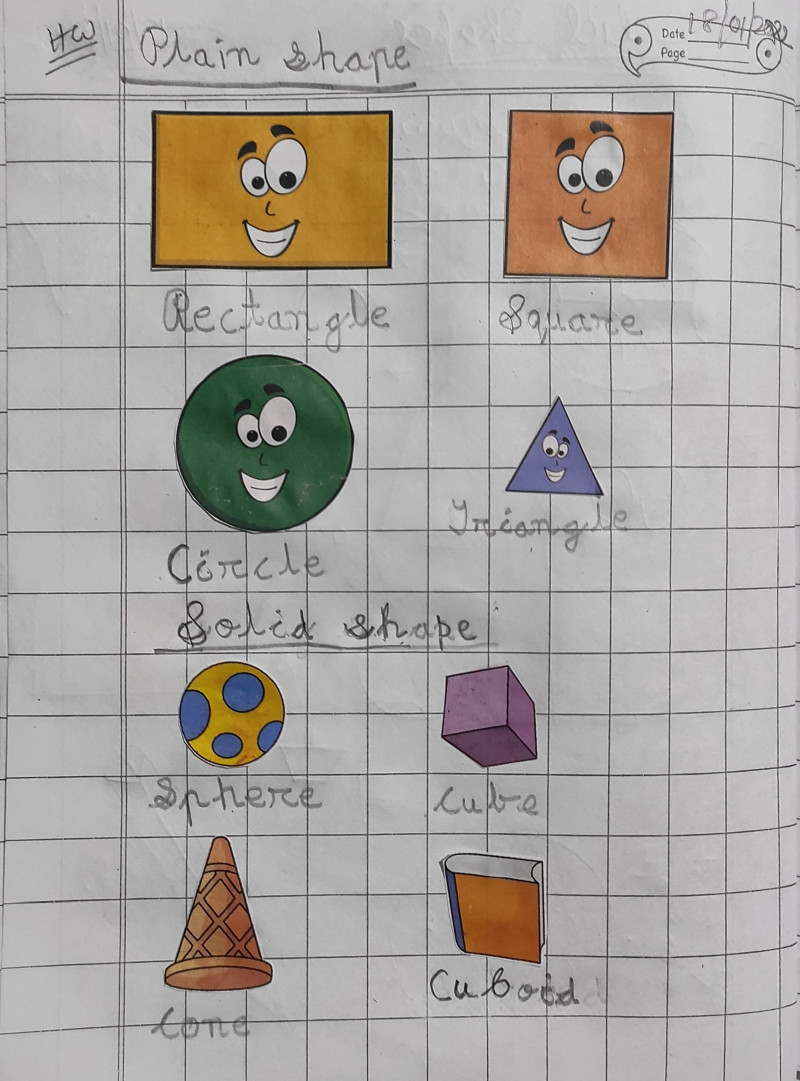 HW
Plain shape
Date 18/01/2022
Page
Rectangle Square
Circle Triangle
Solid shape
Sphere cube
cone Cuboid